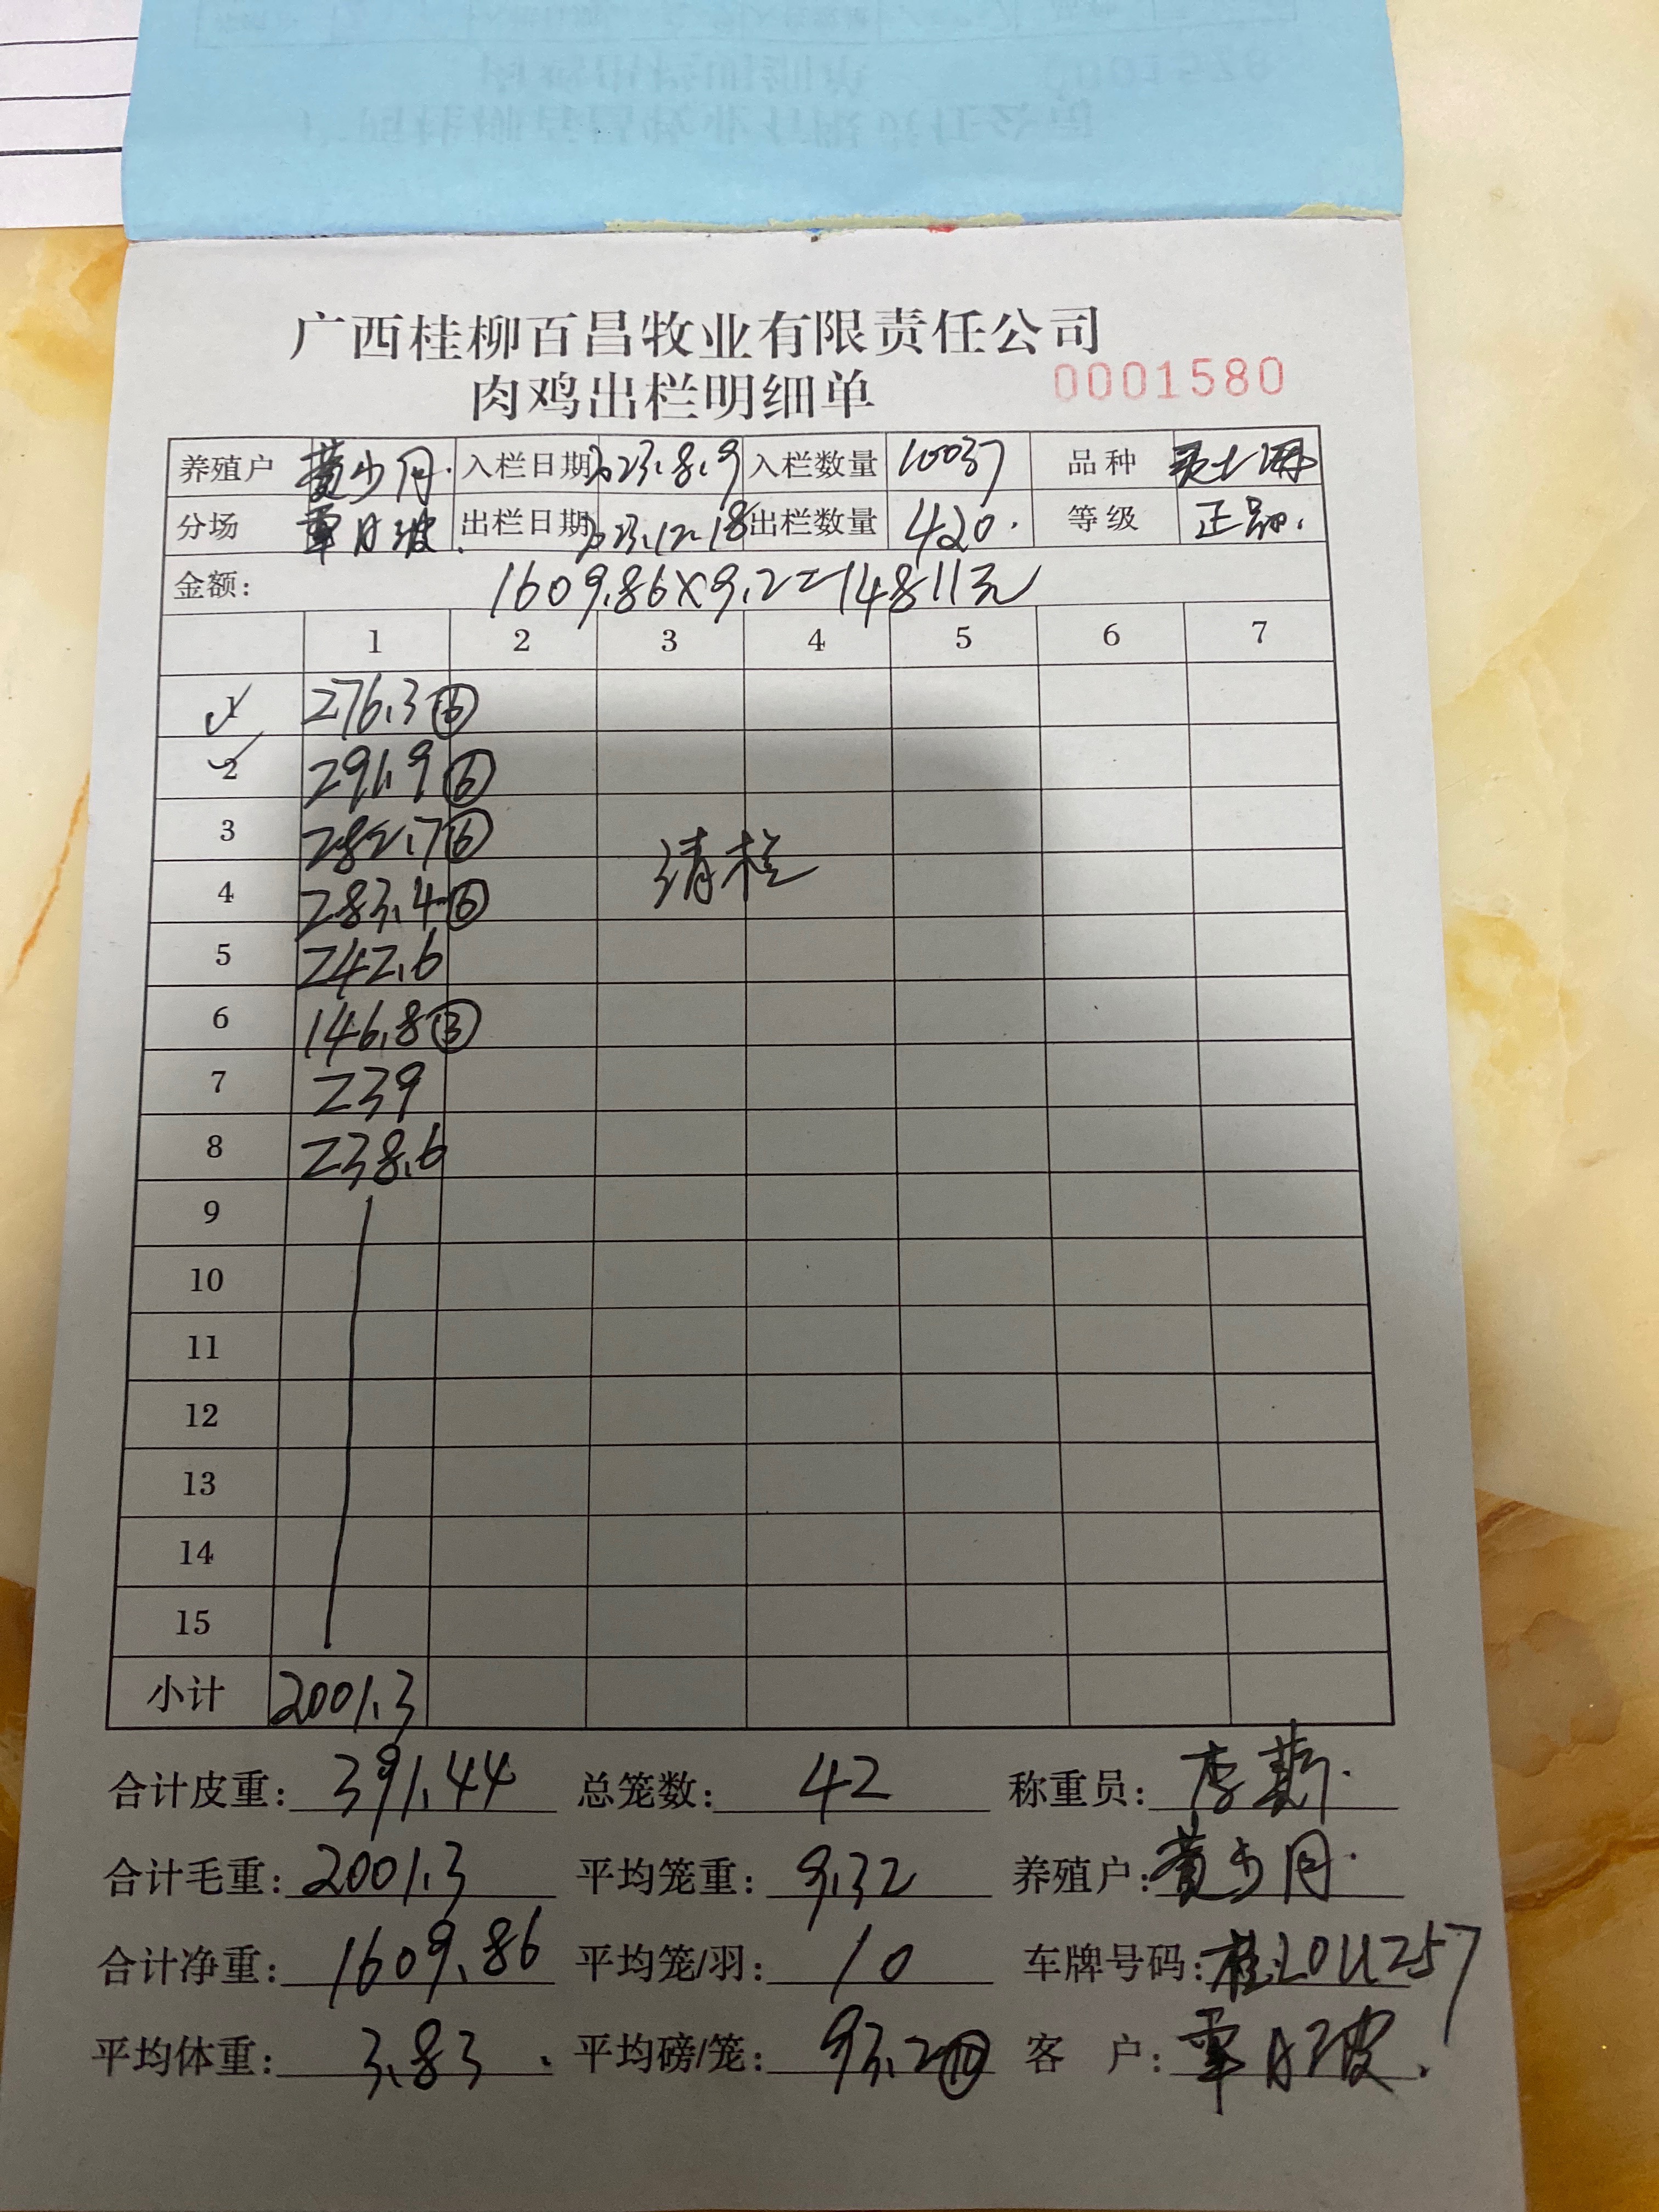 广西桂柳百昌牧业有限责任公司
肉鸡出栏明细单 0001580
养殖户 黄少月 入栏日期 2023.8.9 入栏数量 10037 品种
分场 覃月波 出栏日期 2023.12.18 出栏数量 420. 等级 正品.
金额: 1609.86×9.2=14811元
1 2 3 4 5 6 7
1 276.3 ⑥
2 291.9 ⑥
3 282.7 ⑥
4 283.4 ⑥ 清栏
5 242.6
6 146.8 ③
7 239
8 238.6
9
10
11
12
13
14
15
小计 2001.3
合计皮重: 391.44 总笼数: 42 称重员: 李
合计毛重: 2001.3 平均笼重: 9.32 养殖户: 黄少月.
合计净重: 1609.86 平均笼/羽: 10 车牌号码: 桂L0U257
平均体重: 3.83. 平均磅/笼: 93.2⑩ 客 户: 覃月波.